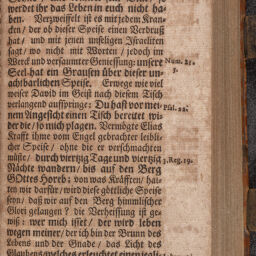 werdet ihr das Leben in euch nicht ha-
ben. Verzweiffelt ist es mit jedem Kran-
cken / der ob dieser Speise einen Verdruß
hat / und mit jenen unseligen Israeliten
sagt / wo nicht mit Worten / jedoch im
Werck und versammter Geniessung: unserer
Seel hat ein Grausen über dieser un-
achtbarlichen Speise. Erwege wie viel
weiser David im Geist nach diesem Tisch
verlangend auffspringe: Du hast vor mei-
nem Angesicht einen Tisch bereitet wi-
der die / so mich plagen. Vernügte Elias
Krafft ihme vom Engel gebrachter leibli-
cher Speise / ohne die er verschmachten
müste / durch viertzig Tage und viertzig
Nächte wandern / bis auf den Berg
GOttes Horeb: von was Kräfften / hal-
ten wir darfür / wird diese göttliche Speise
seyn / daß wir auf den Berg himmlischer
Glori gelangen? die Verheissung ist ge-
wiß: wer mich isset / der wird leben
wegen meiner / der ich bin der Brunn des
Lebens und der Gnade / das Licht des
Glaubens / welches erleuchtet einen
Num. 21.
5.
Psal. 22.
3. Reg. 19.